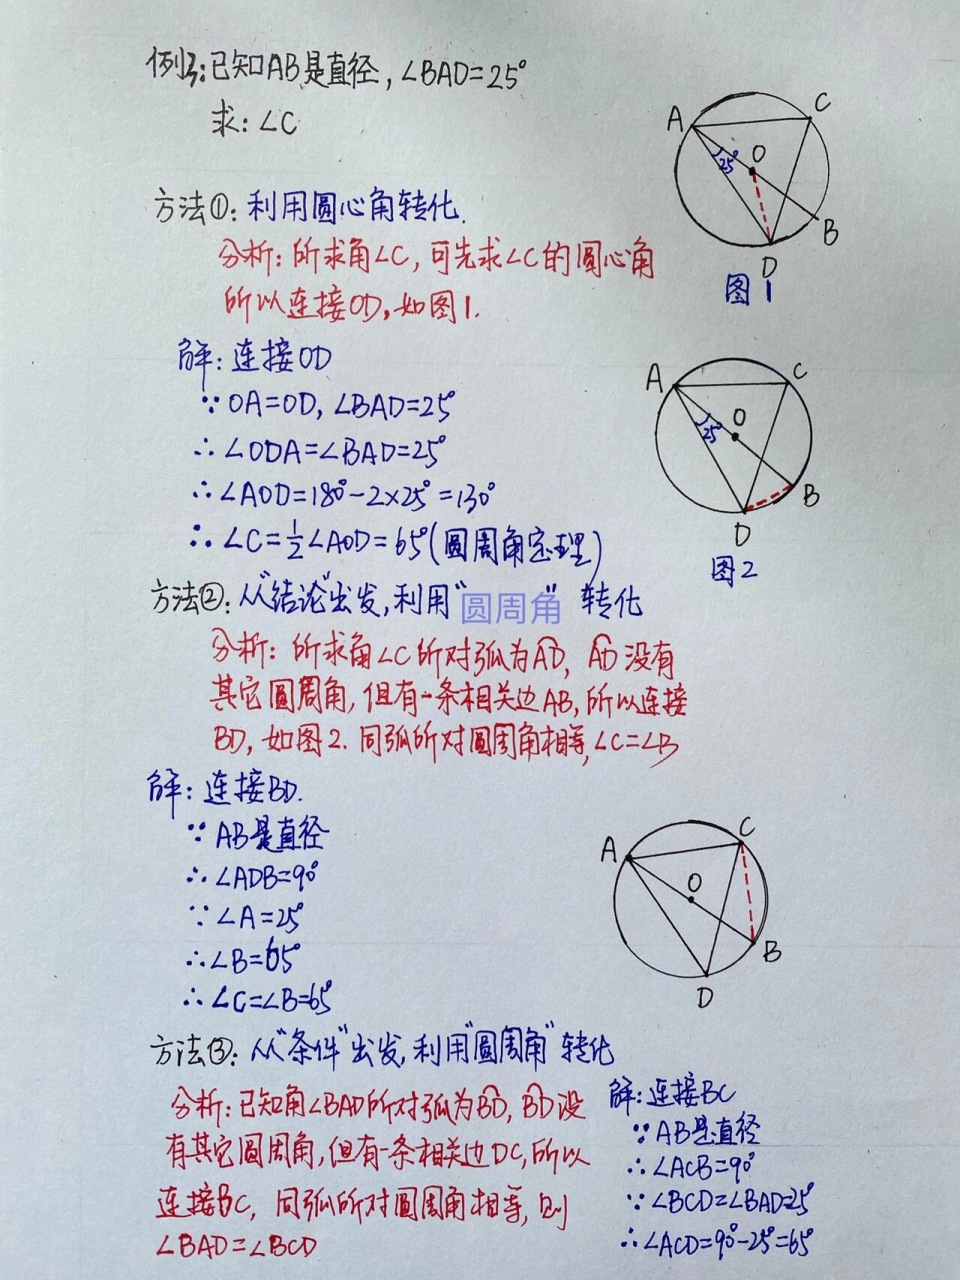 例3:已知AB是直径,∠BAD=25°
求:∠C
A
C
25°
O
B
D
图1
方法①:利用圆心角转化.
分析:所求角∠C,可先求∠C的圆心角
所以连接OD,如图1.
解:连接OD
∵OA=OD,∠BAD=25°
∴∠ODA=∠BAD=25°
∴∠AOD=180°-2×25°=130°
∴∠C=½∠AOD=65°(圆周角定理)
A
C
25°
O
B
D
图2
方法②:从"结论"出发,利用"圆周角"转化
分析:所求角∠C所对弧为A͡D,A͡D没有
其它圆周角,但有一条相关边AB,所以连接
BD,如图2.同弧所对圆周角相等,∠C=∠B
解:连接BD.
∵AB是直径
∴∠ADB=90°
∵∠A=25°
∴∠B=65°
∴∠C=∠B=65°
A
C
O
B
D
方法③:从"条件"出发,利用"圆周角"转化
分析:已知角∠BAD所对弧为B͡D,B͡D没
有其它圆周角,但有一条相关边DC,所以
连接BC,同弧所对圆周角相等,则
∠BAD=∠BCD
解:连接BC
∵AB是直径
∴∠ACB=90°
∵∠BCD=∠BAD=25°
∴∠ACD=90°-25°=65°